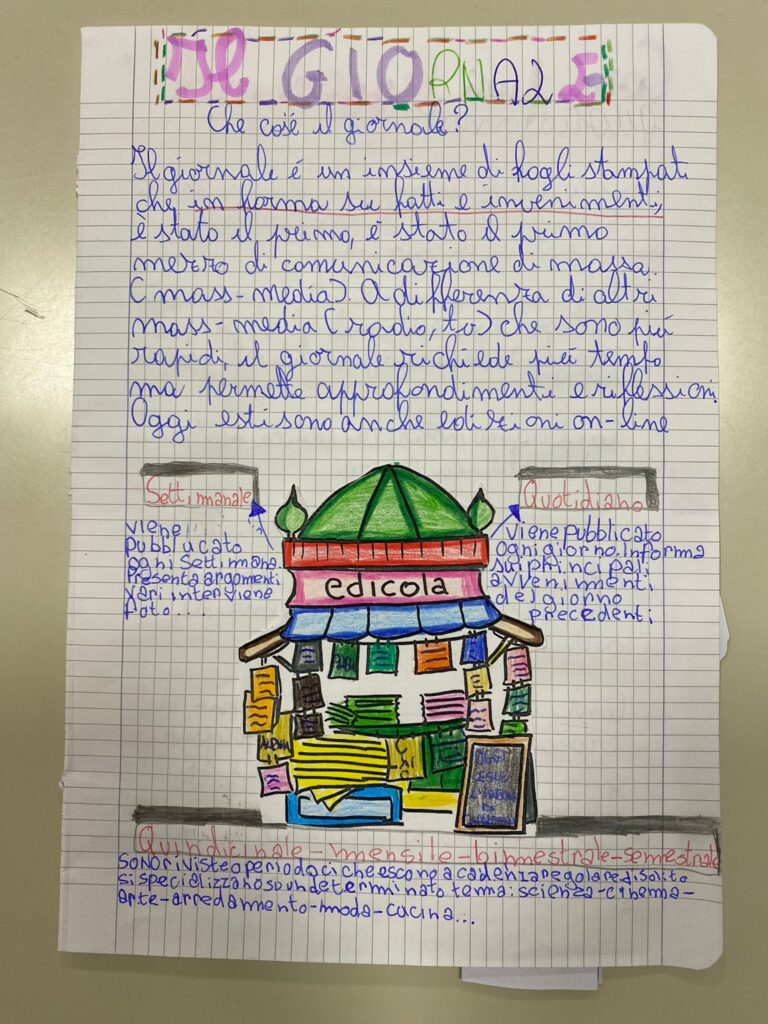 Il GIORNALE
Che cos'é il giornale?
Il giornale é un insieme di fogli stampati
che in forma su fatti e invenimenti,
è stato il primo, é stato il primo
mezzo di comunicazione di massa.
(mass-media). A differenza di altri
mass-media (radio, tv) che sono piú
rapidi, il giornale richiede piú tempo
ma permette approfondimenti e riflessioni.
Oggi esti sono anche edizioni on-line
Settimanale
viene
pubblucato
ogni settimana.
Presenta argomenti
vari interviene
foto...
Quotidiano
viene pubblicato
ogni giorno. Informa
sui phrincipali
avvenimenti
del giorno
precedenti
edicola
CIAO
OGGI
Quindicinale-mensile-bimestrale-semestrale
sono riviste o periodoci che escono a cadenza regolare di solito
si specializzano su un determinato tema: scienza-cinema-
arte-arredamento-moda-cucina...